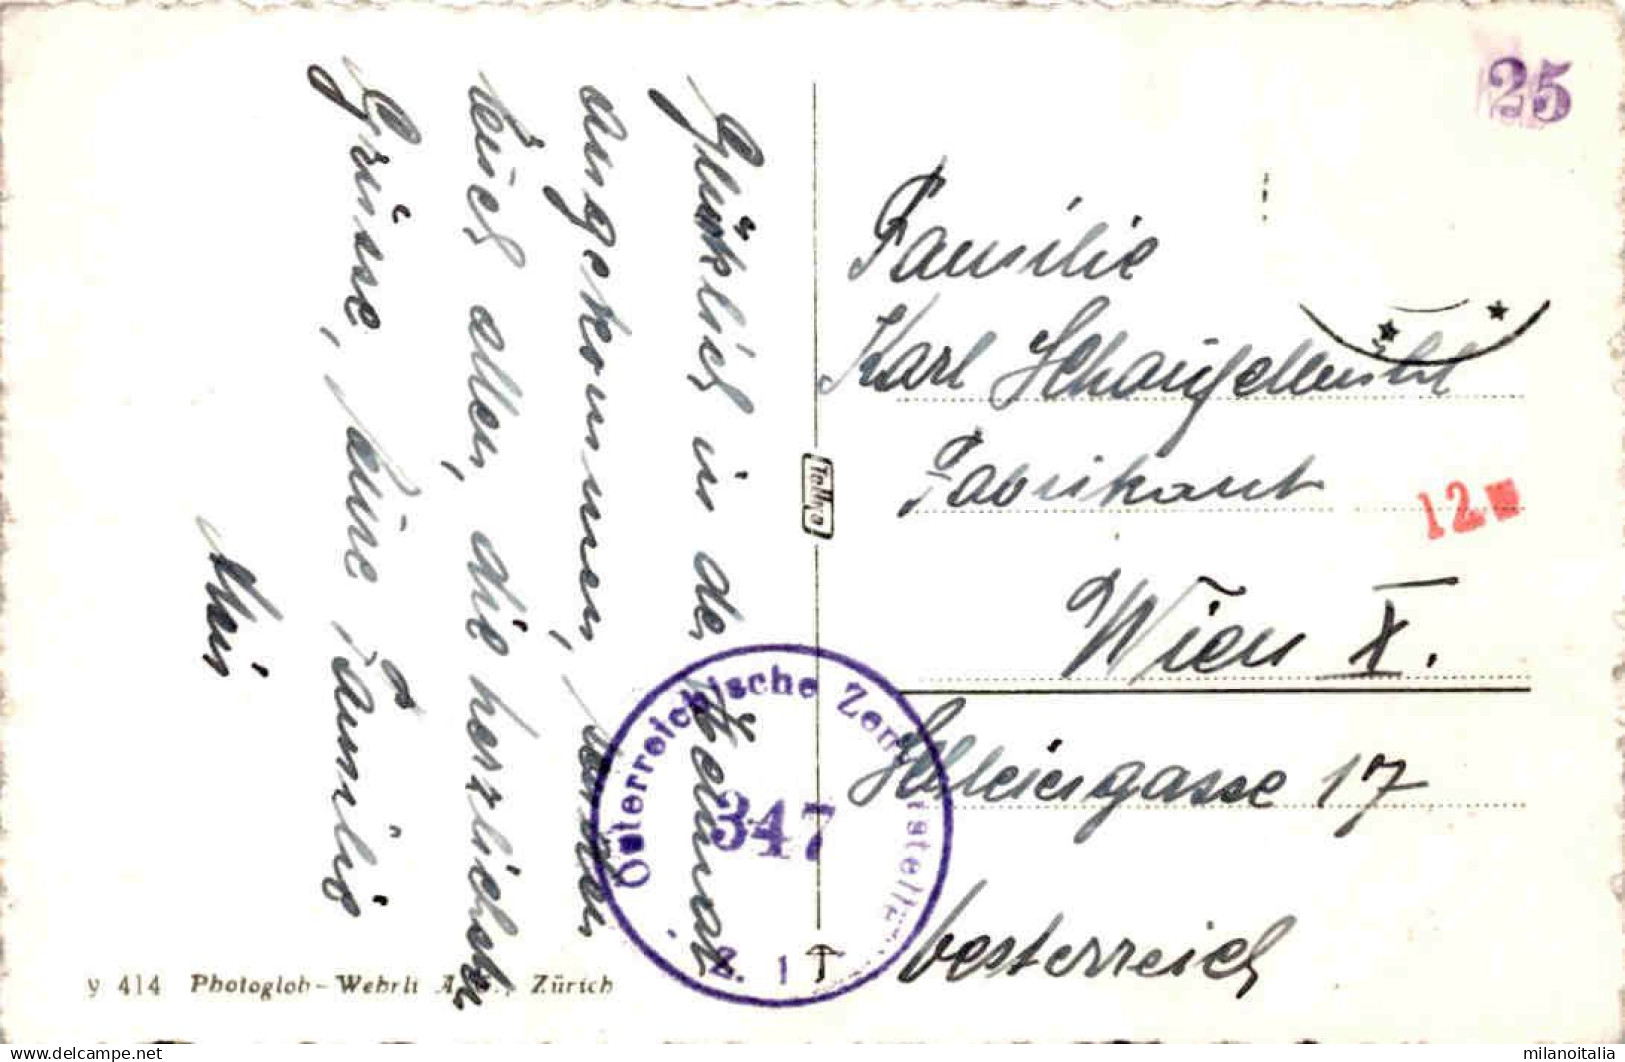 Glücklich in der Heimat
angekommen, senden
Euch allen die herzlichsten
Grüsse, seine Familie
25
Familie
Karl
Fabrikant
12
Wien X.
17
Oesterreich
Tellko
Österreichische Zensurstelle
347
Z. 1
y 414 Photoglob-Wehrli A.G., Zürich
milanoitalia
delcampe.net